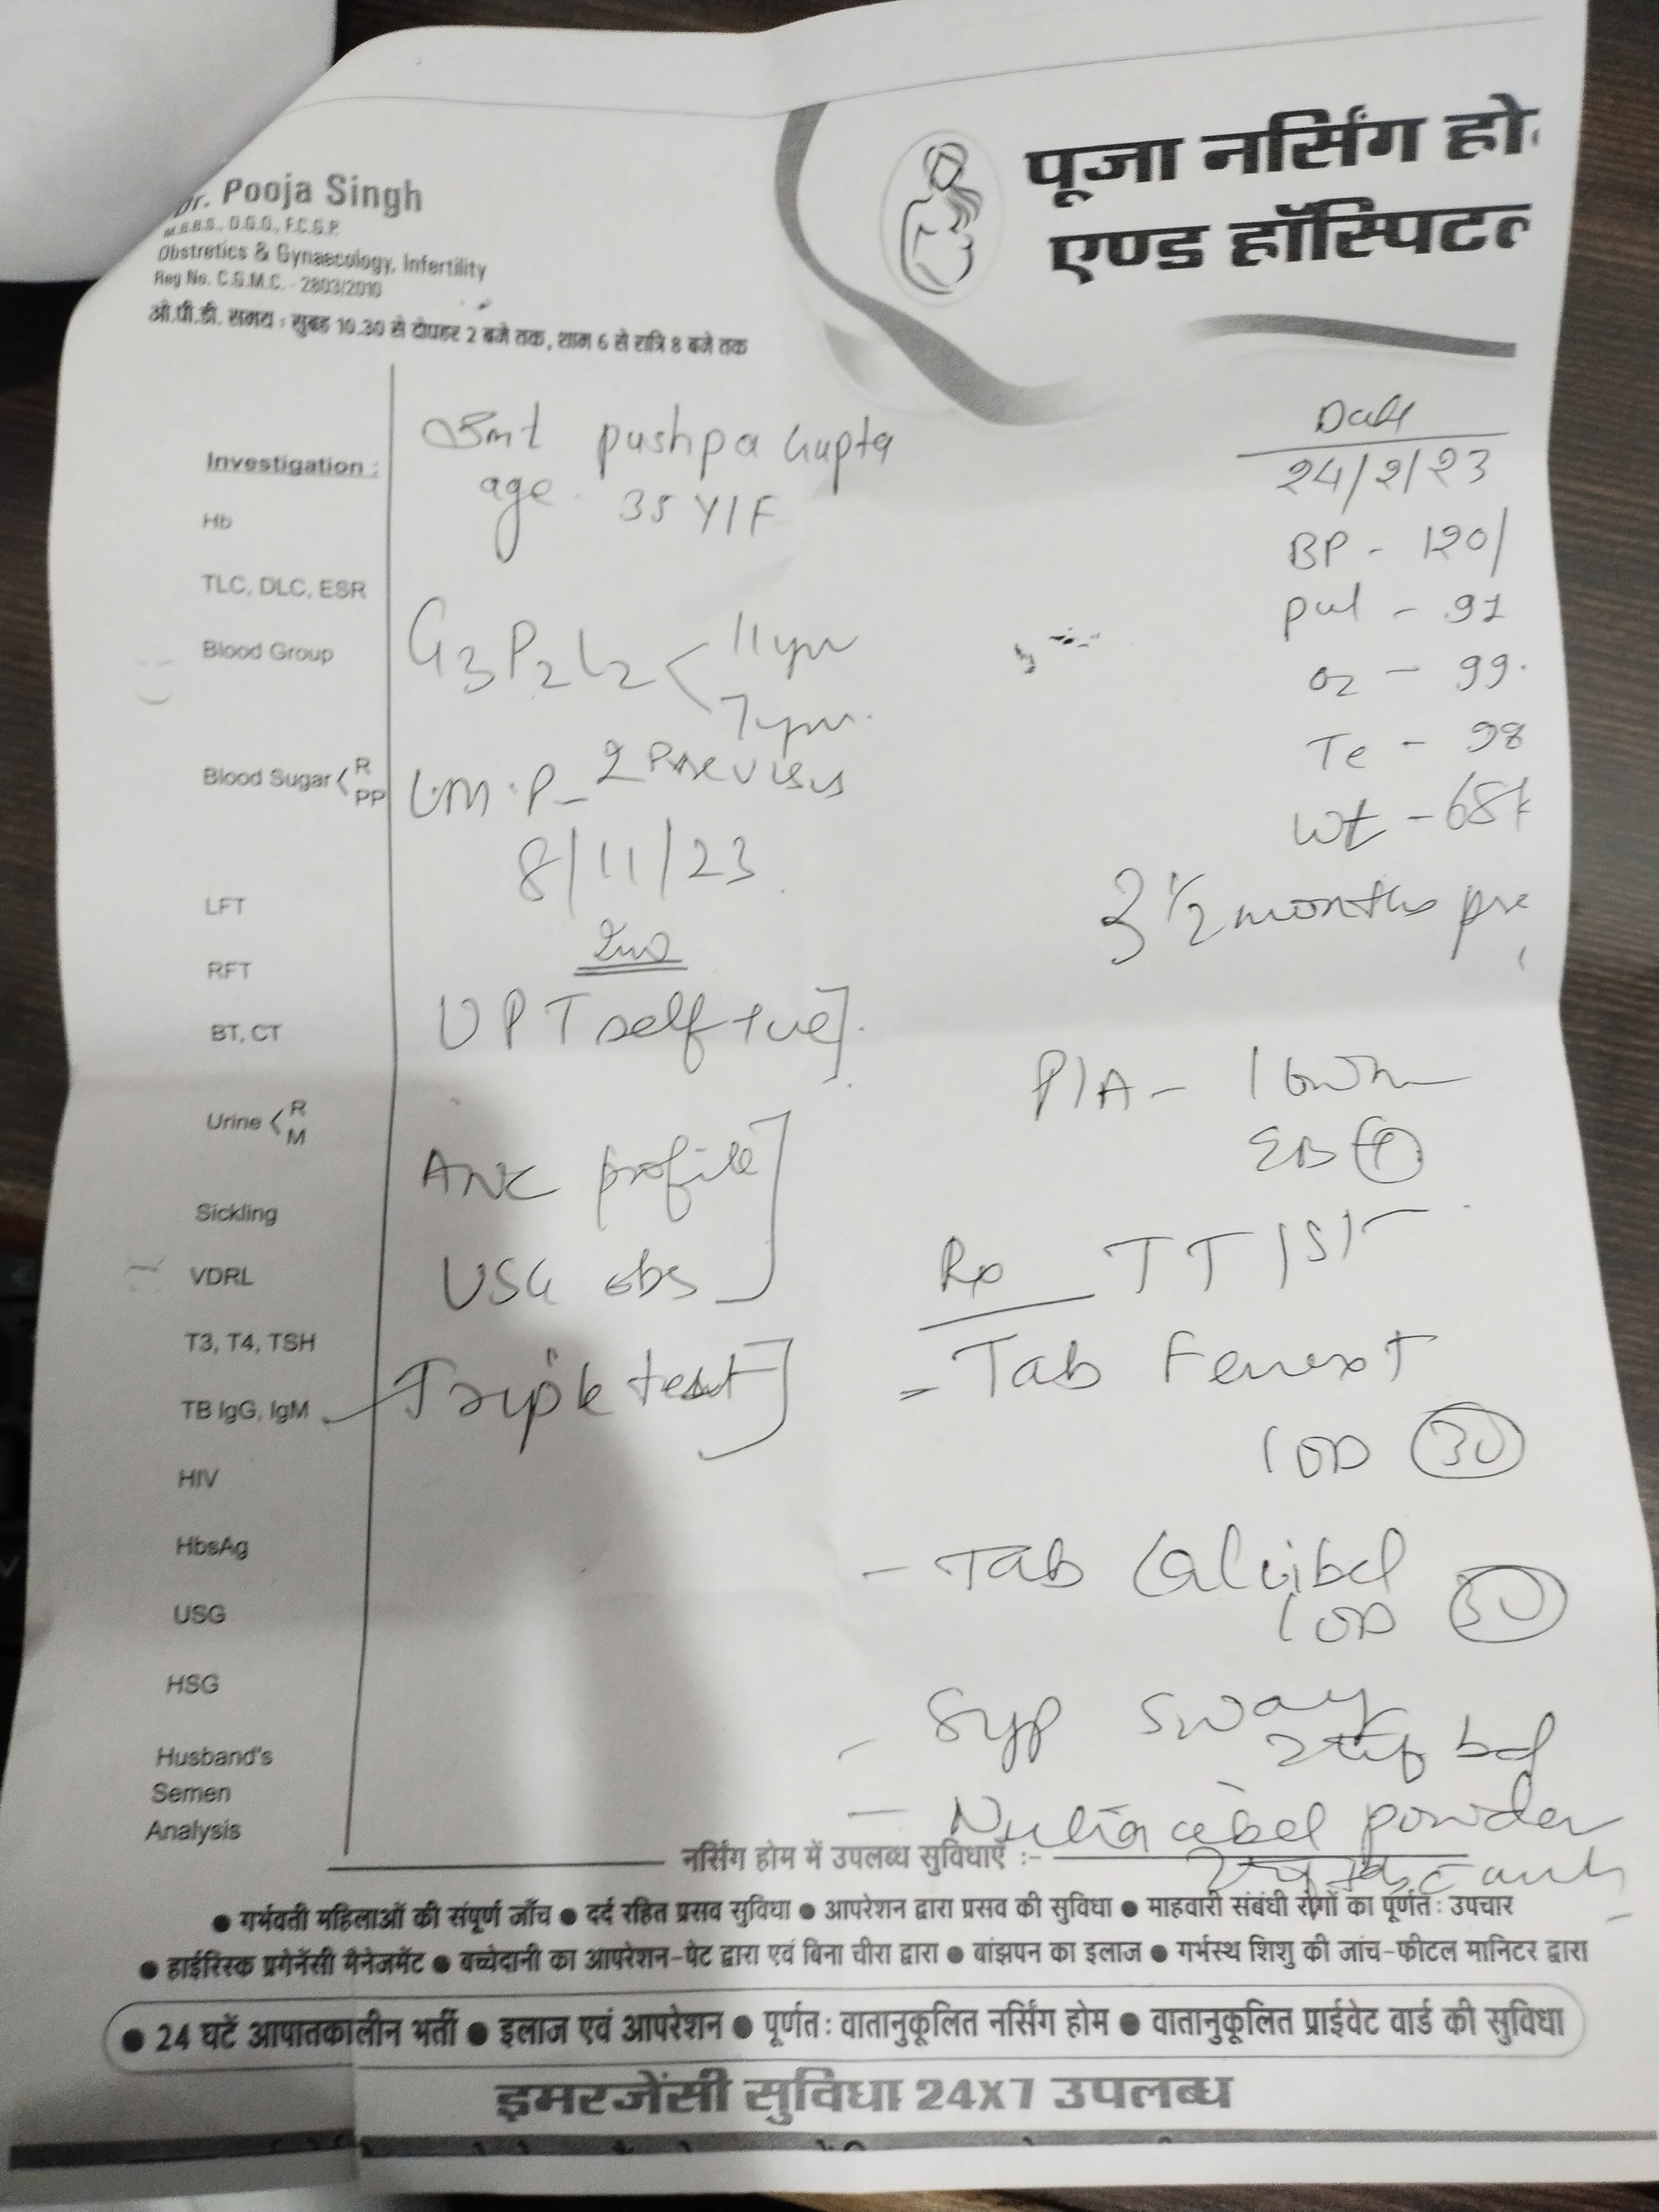 Dr. Pooja Singh
M.B.B.S., D.G.O., F.C.G.P.
Obstretics & Gynaecology, Infertility
Reg No. C.G.M.C. - 2803/2010
ओ.पी.डी. समय : सुबह 10.30 से दोपहर 2 बजे तक, शाम 6 से रात्रि 8 बजे तक
पूजा नर्सिंग हो
एण्ड हॉस्पिटल
Smt pushpa Gupta
age 35 Y/F
Date
24/2/23
BP - 120/
pul - 91
O2 - 99.
Te - 98
Wt - 68k
3 1/2 months pre
Investigation :
Hb
TLC, DLC, ESR
Blood Group
Blood Sugar < R
PP
LFT
RFT
BT, CT
Urine < R
M
Sickling
VDRL
T3, T4, TSH
TB IgG, IgM
HIV
HbsAg
USG
HSG
Husband's
Semen
Analysis
G3P2L2 < 11yr
7yr.
LM.P - 2 Previous
8/11/23
UPT self +ve]
ANC profile
USG obs
Triple test
P/A -
EB +
Rx TT
- Tab
1 OD 30
- Tab
1 OD 30
- Syp sway
bd
- powder
नर्सिंग होम में उपलब्ध सुविधाएँ :-
● गर्भवती महिलाओं की संपूर्ण जाँच ● दर्द रहित प्रसव सुविधा ● आपरेशन द्वारा प्रसव की सुविधा ● माहवारी संबंधी रोगों का पूर्णतः उपचार
● हाईरिस्क प्रगेनेंसी मैनेजमेंट ● बच्चेदानी का आपरेशन-पेट द्वारा एवं बिना चीरा द्वारा ● बांझपन का इलाज ● गर्भस्थ शिशु की जांच-फीटल मानिटर द्वारा
● 24 घटें आपातकालीन भर्ती ● इलाज एवं आपरेशन ● पूर्णतः वातानुकूलित नर्सिंग होम ● वातानुकूलित प्राईवेट वार्ड की सुविधा
इमरजेंसी सुविधा 24X7 उपलब्ध